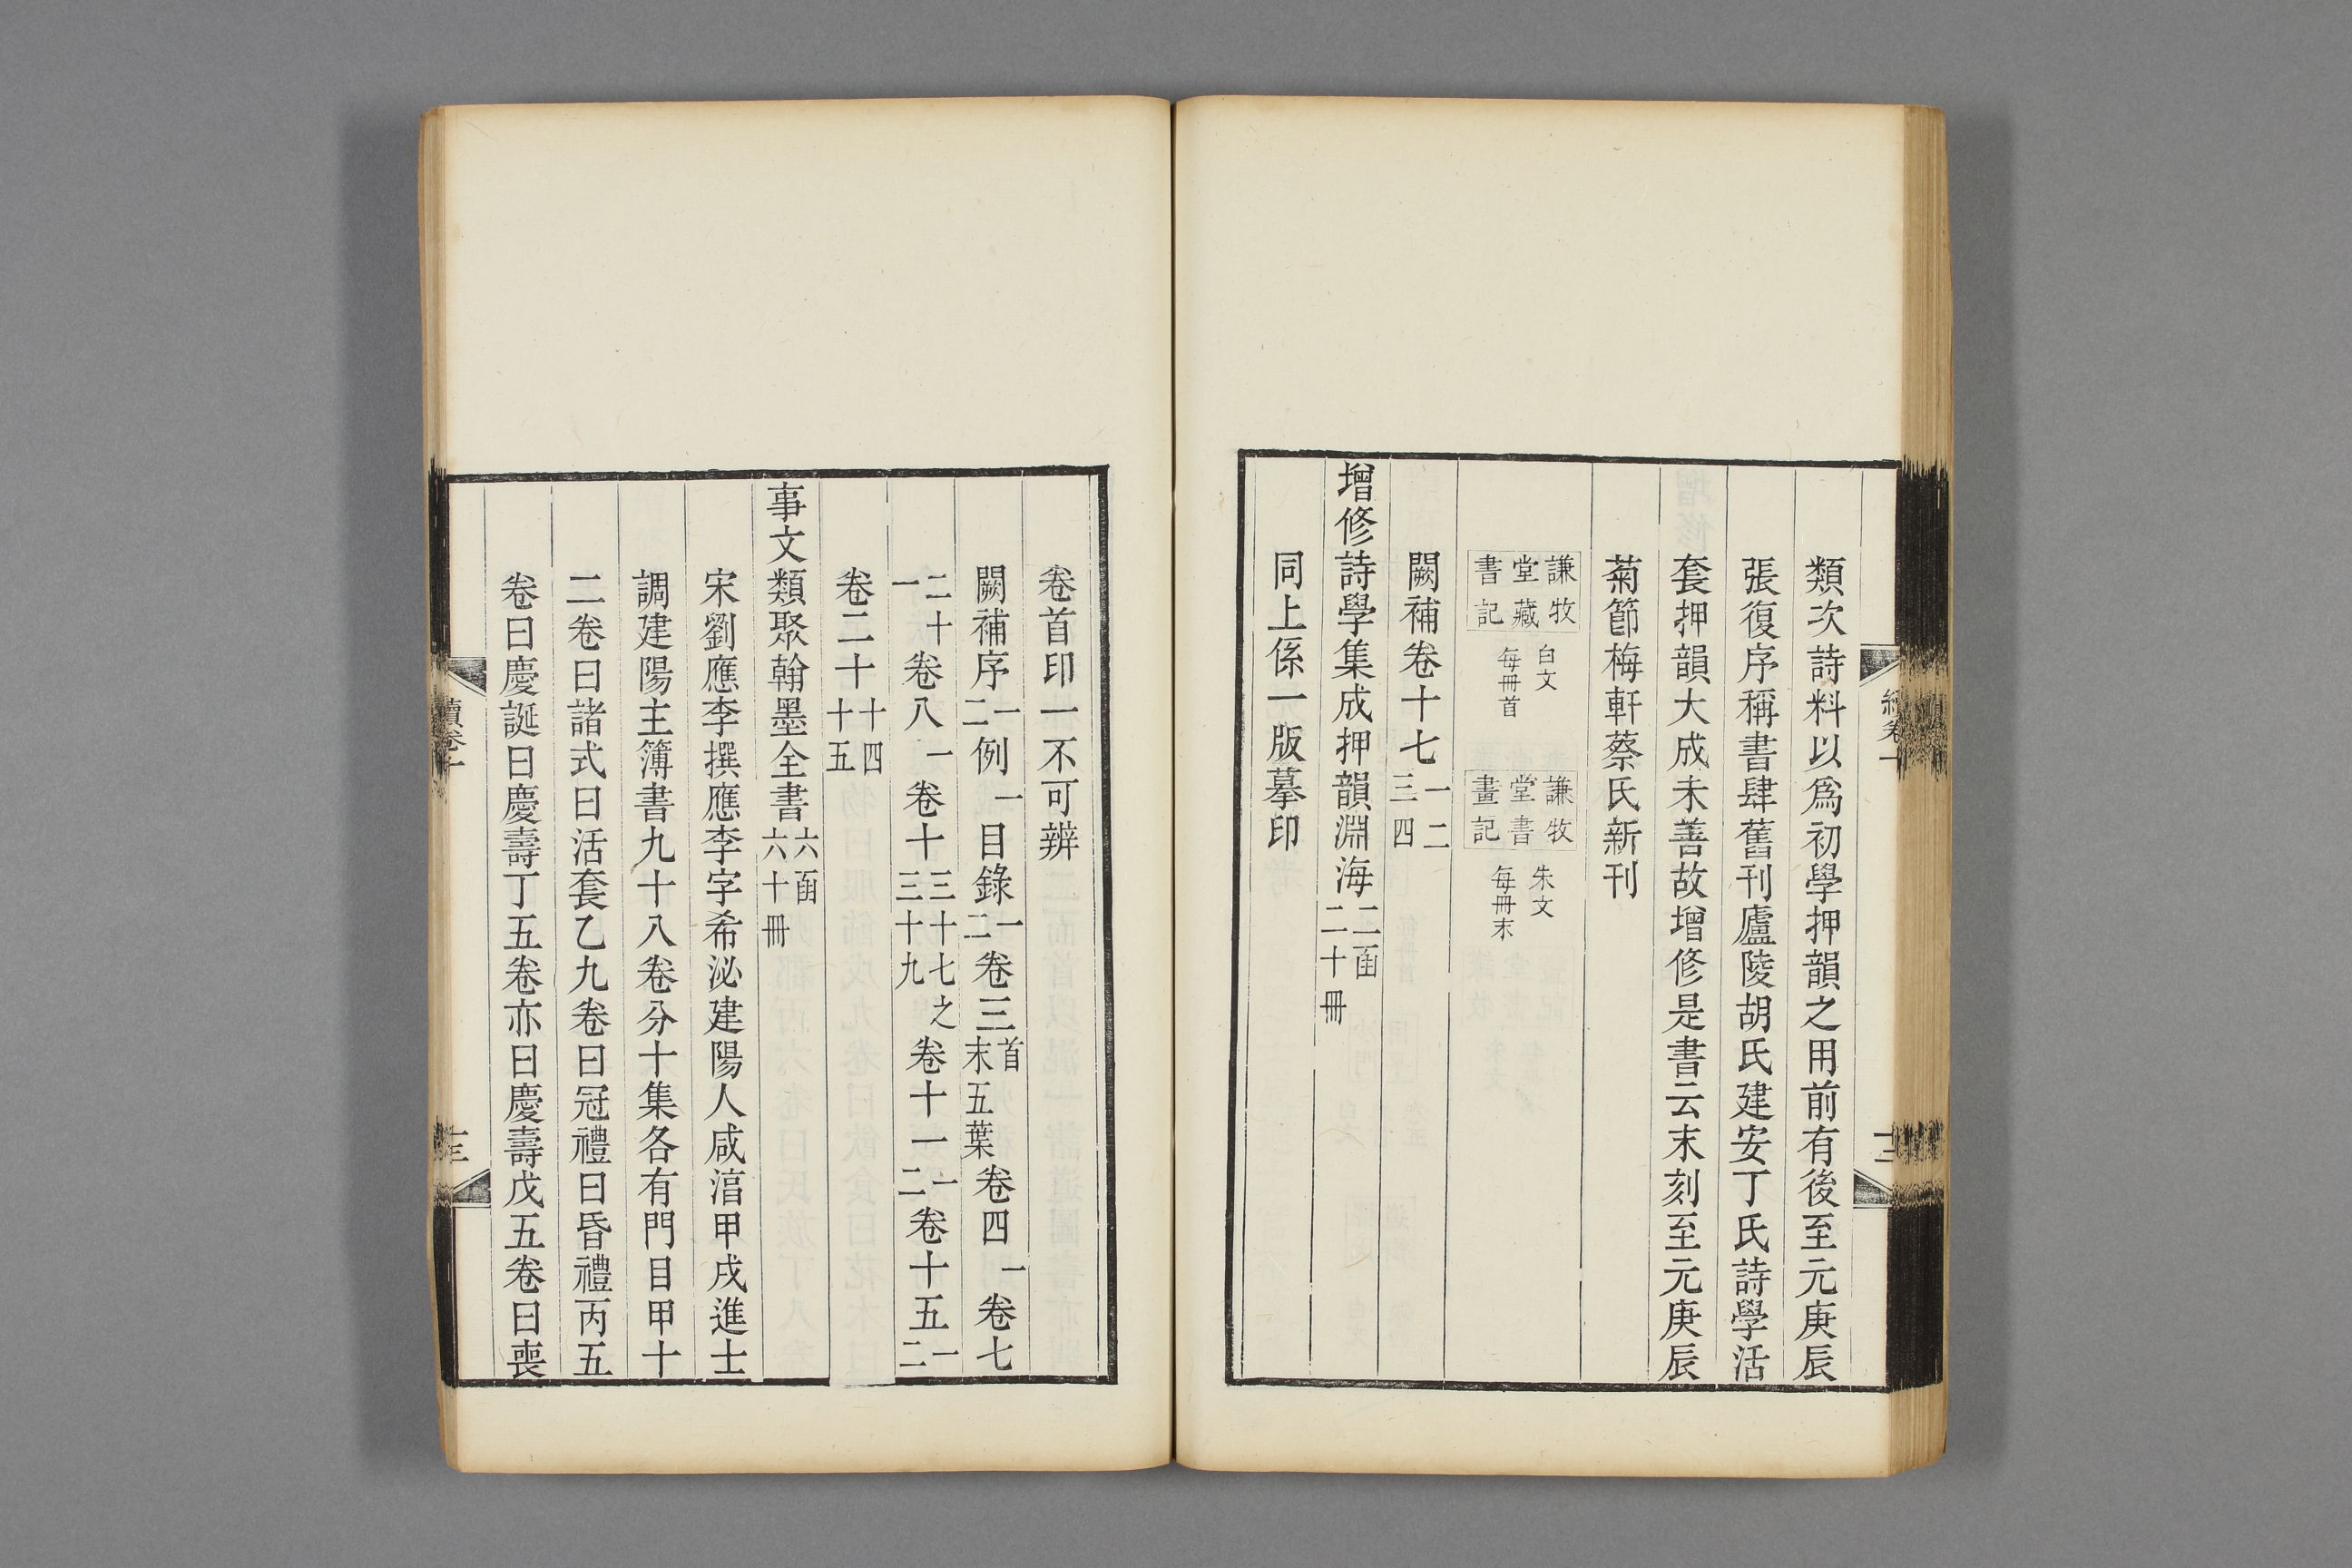 類次詩料以爲初學押韻之用前有後至元庚辰
張復序稱書肆舊刊廬陵胡氏建安丁氏詩學活
套押韻大成未善故增修是書云末刻至元庚辰
菊節梅軒蔡氏新刊
謙牧堂藏書記 白文每冊首 謙牧堂書畫記 朱文每冊末
闕補卷十七一二三四
增修詩學集成押韻淵海二函二十冊
同上係一版摹印
卷首印一不可辨
闕補序一二例一目錄一二卷三首末五葉卷四一卷七
二十一卷八一卷十三十七之三十九卷十一一二卷十五一二
卷二十十四十五
事文類聚翰墨全書六函六十冊
宋劉應李撰應李字希泌建陽人咸淳甲戌進士
調建陽主簿書九十八卷分十集各有門目甲十
二卷曰諸式曰活套乙九卷曰冠禮曰昏禮丙五
卷曰慶誕曰慶壽丁五卷亦曰慶壽戊五卷曰喪
續卷十
十三